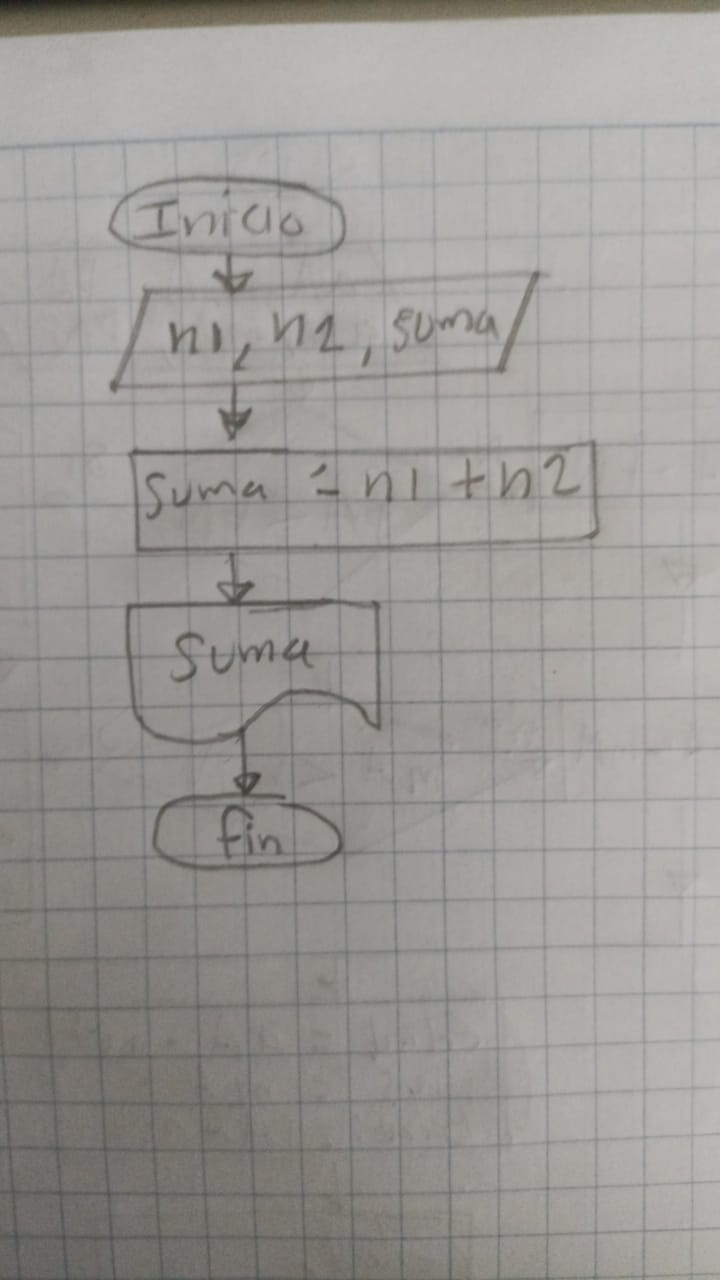 Inicio
n1, n2, suma
Suma = n1 + n2
Suma
fin